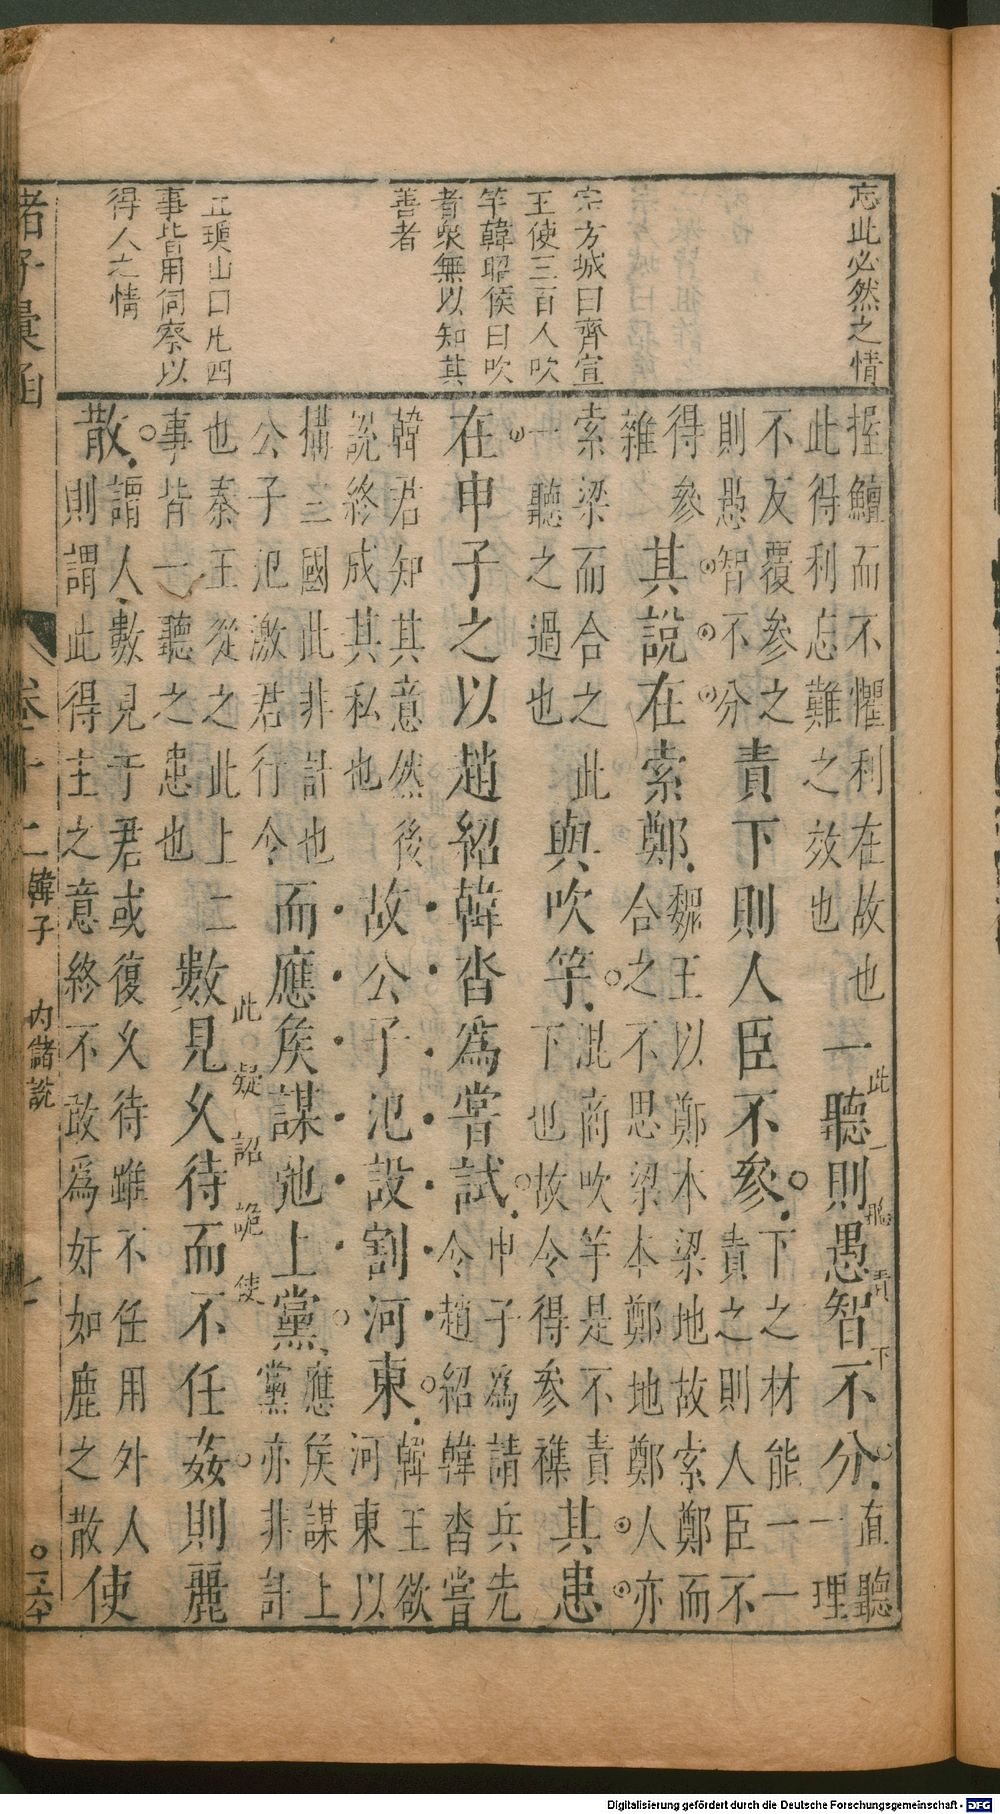 忘此必然之情
宗方城曰齊宣
王使三百人吹
竽韓昭侯曰吹
者衆無以知其
善者
王瓊山曰此四
事皆用伺察以
得人之情
握鱣而不懼利在故也
此得利忘難之效也
一聽則愚智不分
此一聽責下
直聽一理
不反覆參之
則愚智不分
責下則人臣不參
下之材能一一
責之則人臣不
得參
雜
其說在索鄭
魏王以鄭本梁地故索鄭而
合之不思梁本鄭地鄭人亦
索梁而合之此
一聽之過也
與吹竽
混商吹竽是不責
下也故令得參襍
其患
在申子之以趙紹韓沓爲嘗試
申子爲請兵先
令趙紹韓沓嘗
韓君知其意然後
說終成其私也
故公子氾設割河東
韓王欲
河東以
搆三國此非計也
公子氾激君行令
而應矦謀弛上黨
應矦謀上
黨亦非計
也秦王從之此上二
事皆一聽之患也
此疑詔詭使
數見久待而不任姦則麤
散
謂人數見于君或復久待雖不任用外人
則謂此得主之意終不敢爲奸如鹿之散
使
諸子彙函
卷十二
韓子
內儲說
Digitalisierung gefördert durch die Deutsche Forschungsgemeinschaft - DFG